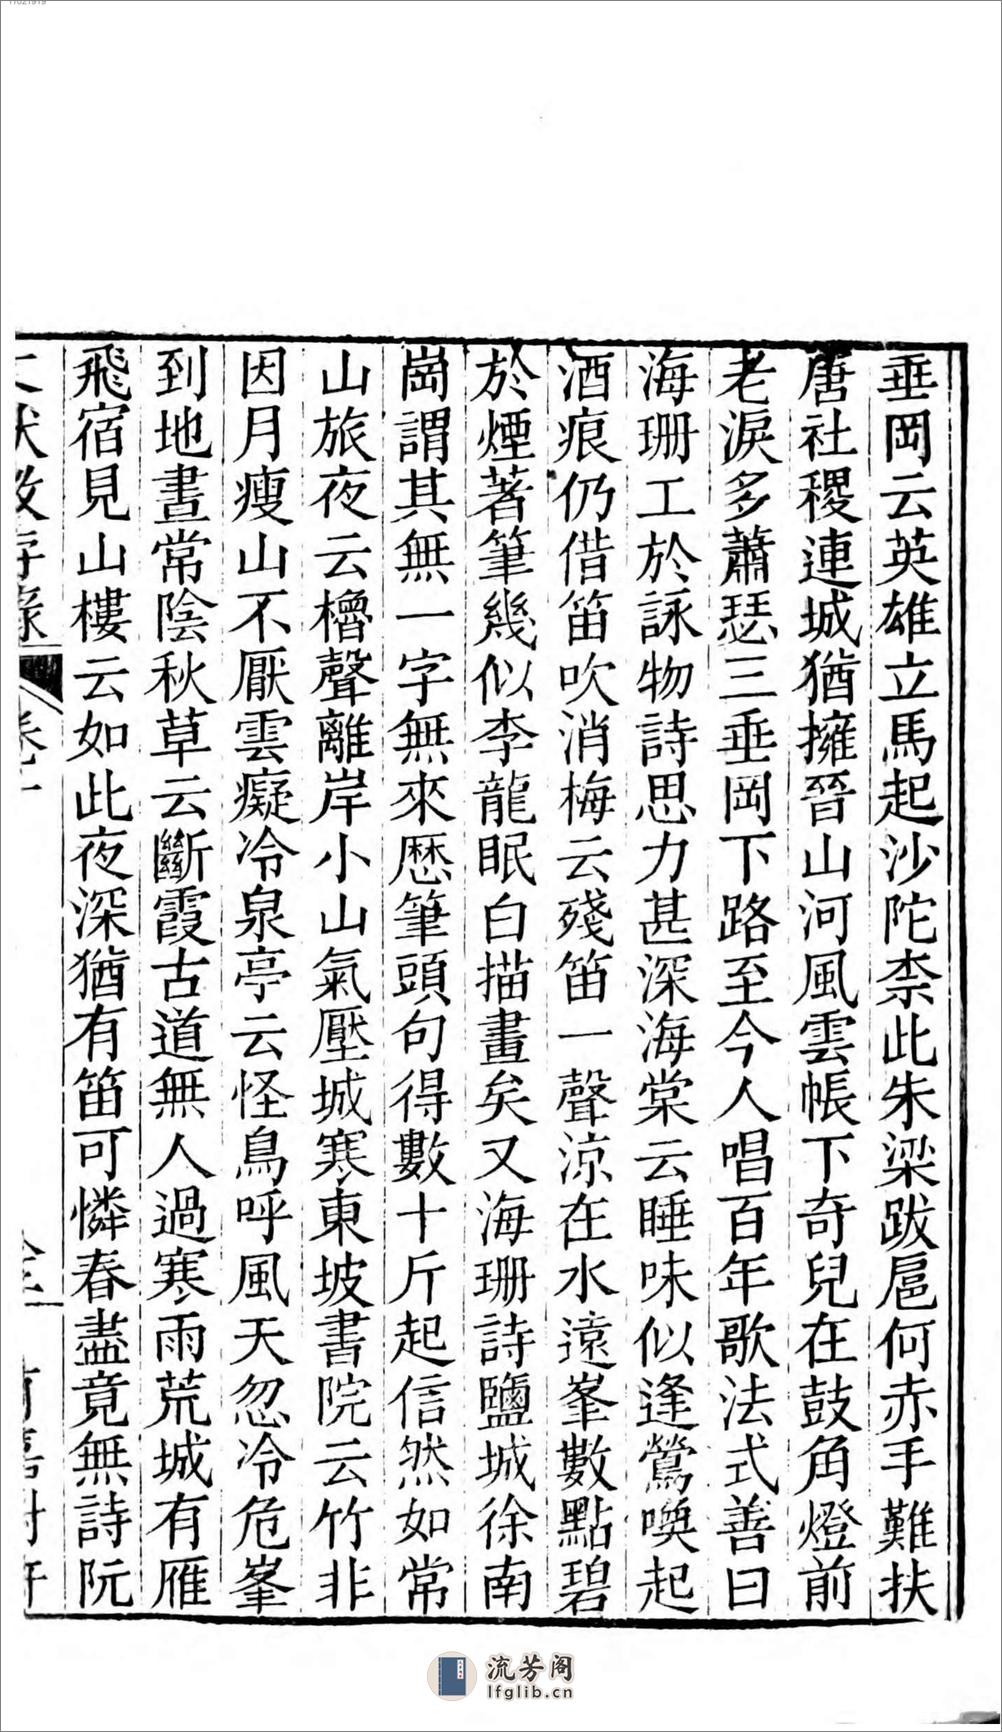 11021919
垂岡云英雄立馬起沙陀柰此朱梁跋扈何赤手難扶
唐社稷連城猶擁晉山河風雲帳下奇兒在鼓角燈前
老淚多蕭瑟三垂岡下路至今人唱百年歌法式善曰
海珊工於詠物詩思力甚深海棠云睡味似逢鶯喚起
酒痕仍借笛吹消梅云殘笛一聲涼在水遠峯數點碧
於煙著筆幾似李龍眠白描畫矣又海珊詩鹽城徐南
崗謂其無一字無來歷筆頭句得數十斤起信然如常
山旅夜云櫓聲離岸小山氣壓城寒東坡書院云竹非
因月瘦山不厭雲癡冷泉亭云怪鳥呼風天忽冷危峯
到地晝常陰秋草云斷霞古道無人過寒雨荒城有雁
飛宿見山樓云如此夜深猶有笛可憐春盡竟無詩阮
流芳阁
lfglib.cn